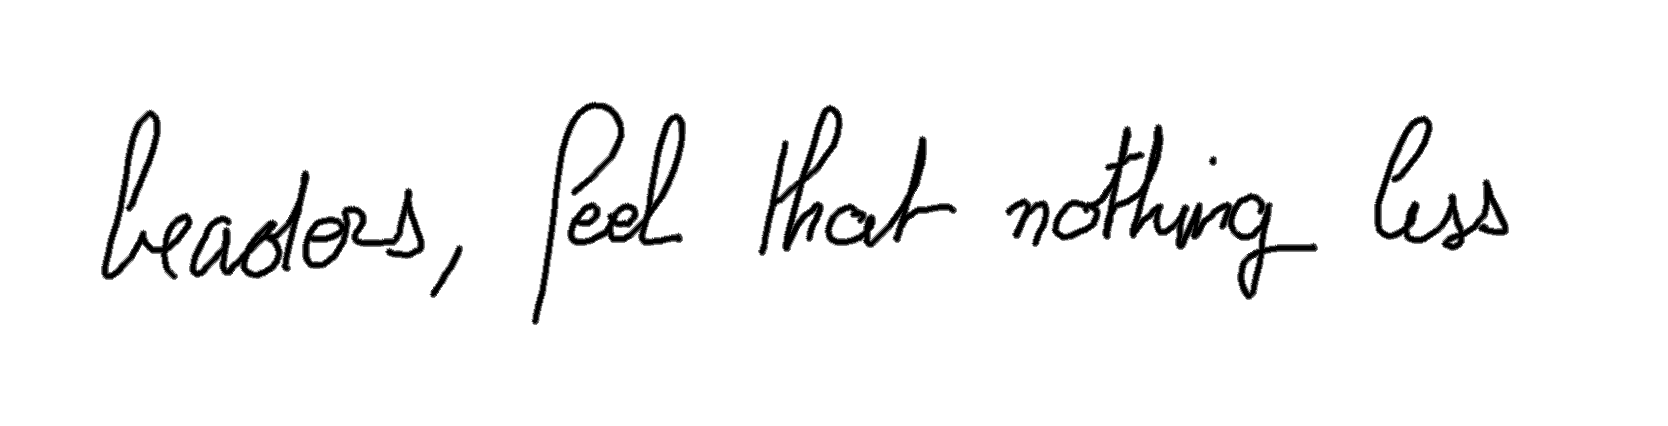 leaders, feel that nothing less